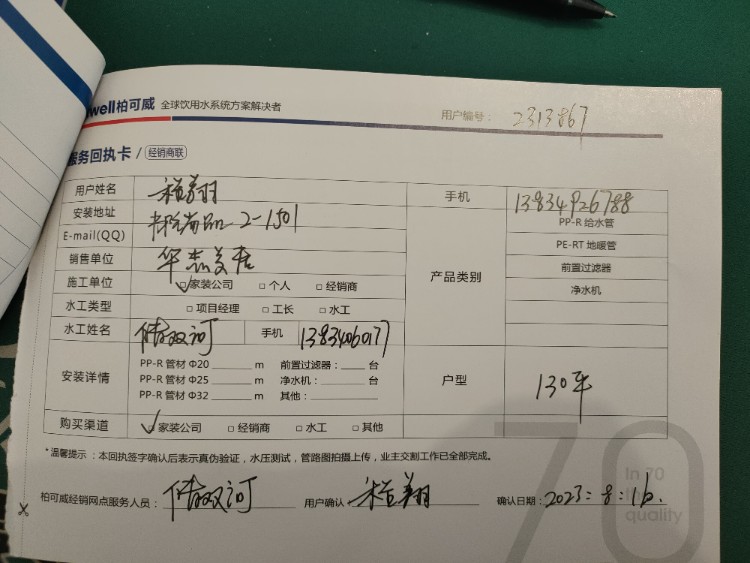 well柏可威 全球饮用水系统方案解决者
用户编号： 2313867
服务回执卡 / 经销商联
用户姓名 手机 13834926788
安装地址 2-1501
E-mail(QQ)
销售单位 华杰美居
施工单位 家装公司 个人 经销商
水工类型 项目经理 工长 水工
水工姓名 手机 13834060177
产品类别
PP-R 给水管
PE-RT 地暖管
前置过滤器
净水机
安装详情
PP-R 管材 Φ20 m 前置过滤器： 台
PP-R 管材 Φ25 m 净水机： 台
PP-R 管材 Φ32 m 其他：
户型 130平
购买渠道 家装公司 经销商 水工 其他
*温馨提示：本回执签字确认后表示真伪验证，水压测试，管路图拍摄上传，业主交割工作已全部完成。
柏可威经销网点服务人员： 用户确认 确认日期： 2023：8：16.
70
In 70
quality